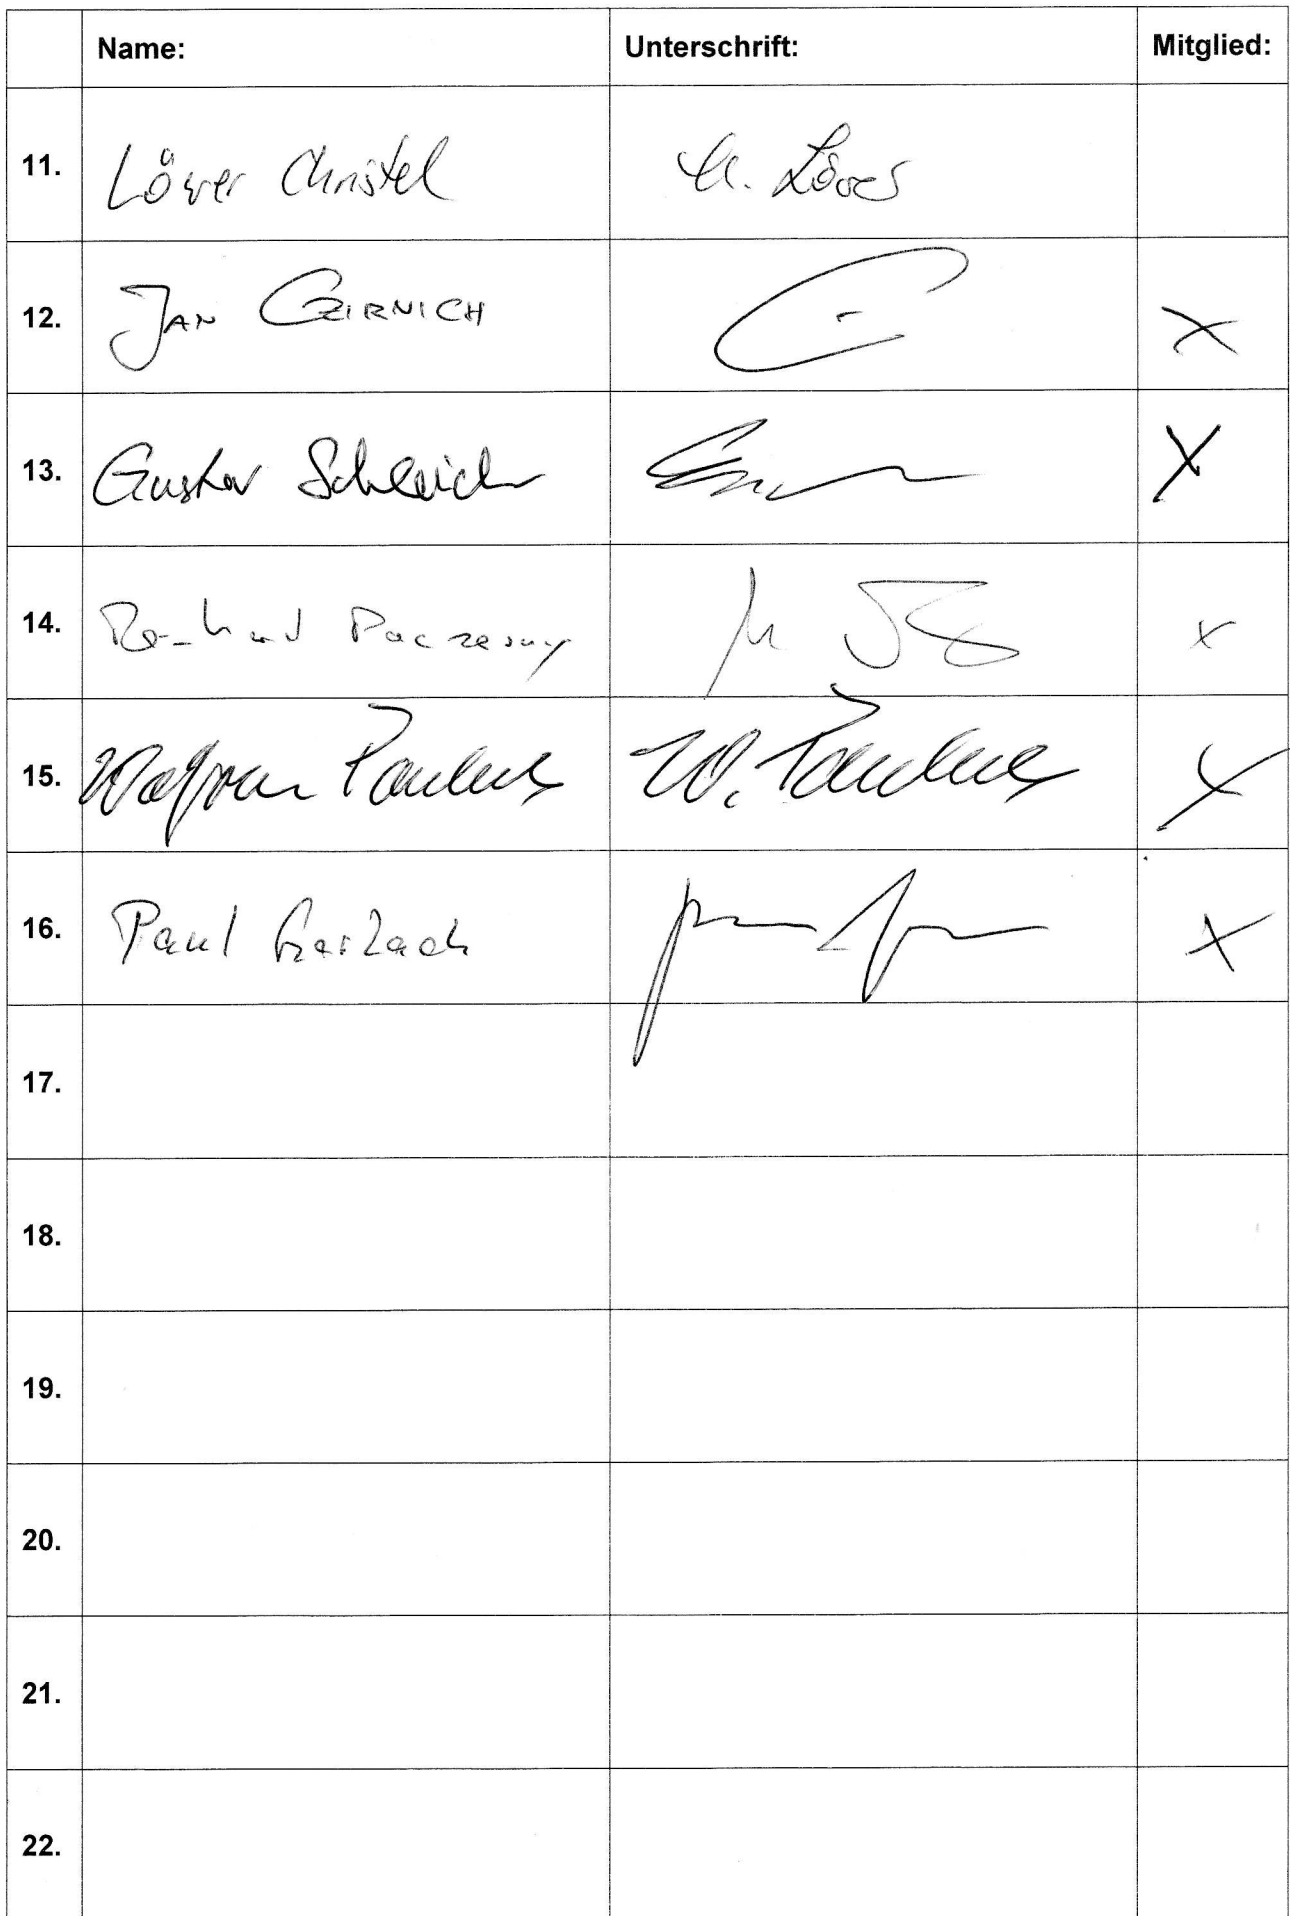 Name: Unterschrift: Mitglied:
11. Löwer Christel Ch. Löwer
12. JAN CZIRNICH X
13. Gustav Schleicher X
14. Reinhard Paczesny x
15. Paulus W. Paulus X
16. Paul X
17.
18.
19.
20.
21.
22.